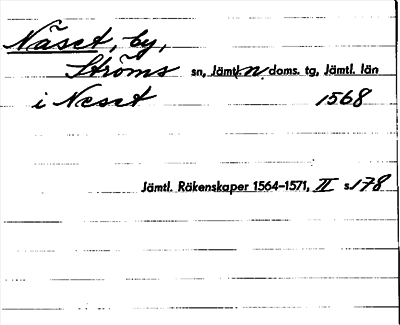 Näset, by,
Ströms sn, Jämtl. n. doms. tg, Jämtl. län
i Neset 1568
Jämtl. Räkenskaper 1564–1571, II s. 178